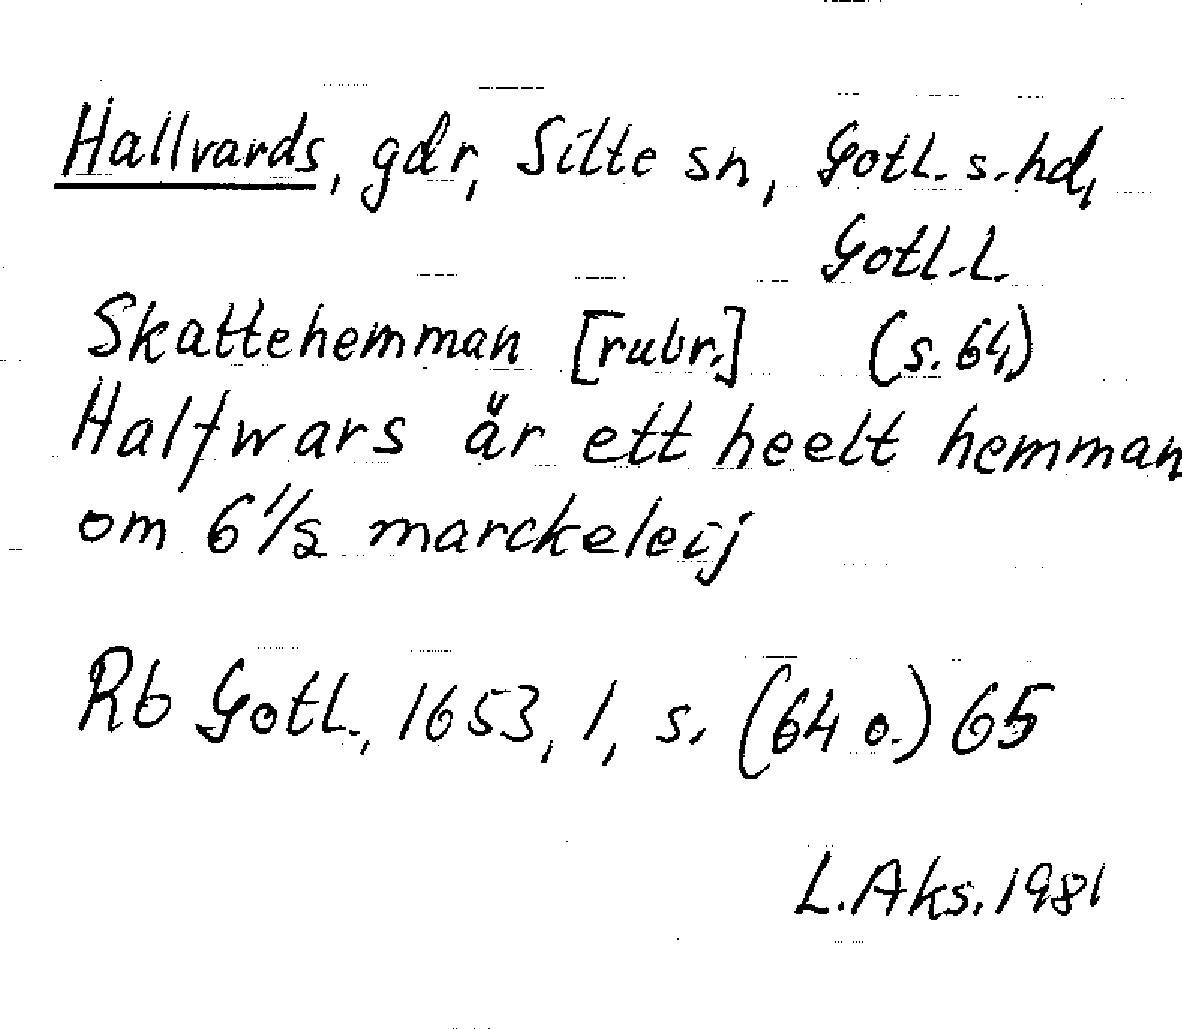 Hallvards, gdr, Silte sn, Gotl. s. hd,
Gotl. l.
Skattehemman [rubr.] (s. 64)
Halfwars är ett heelt hemman
om 6 1/2 marckeleij
Rb Gotl., 1653, 1, s. (64 o.) 65
L. Aks. 1981